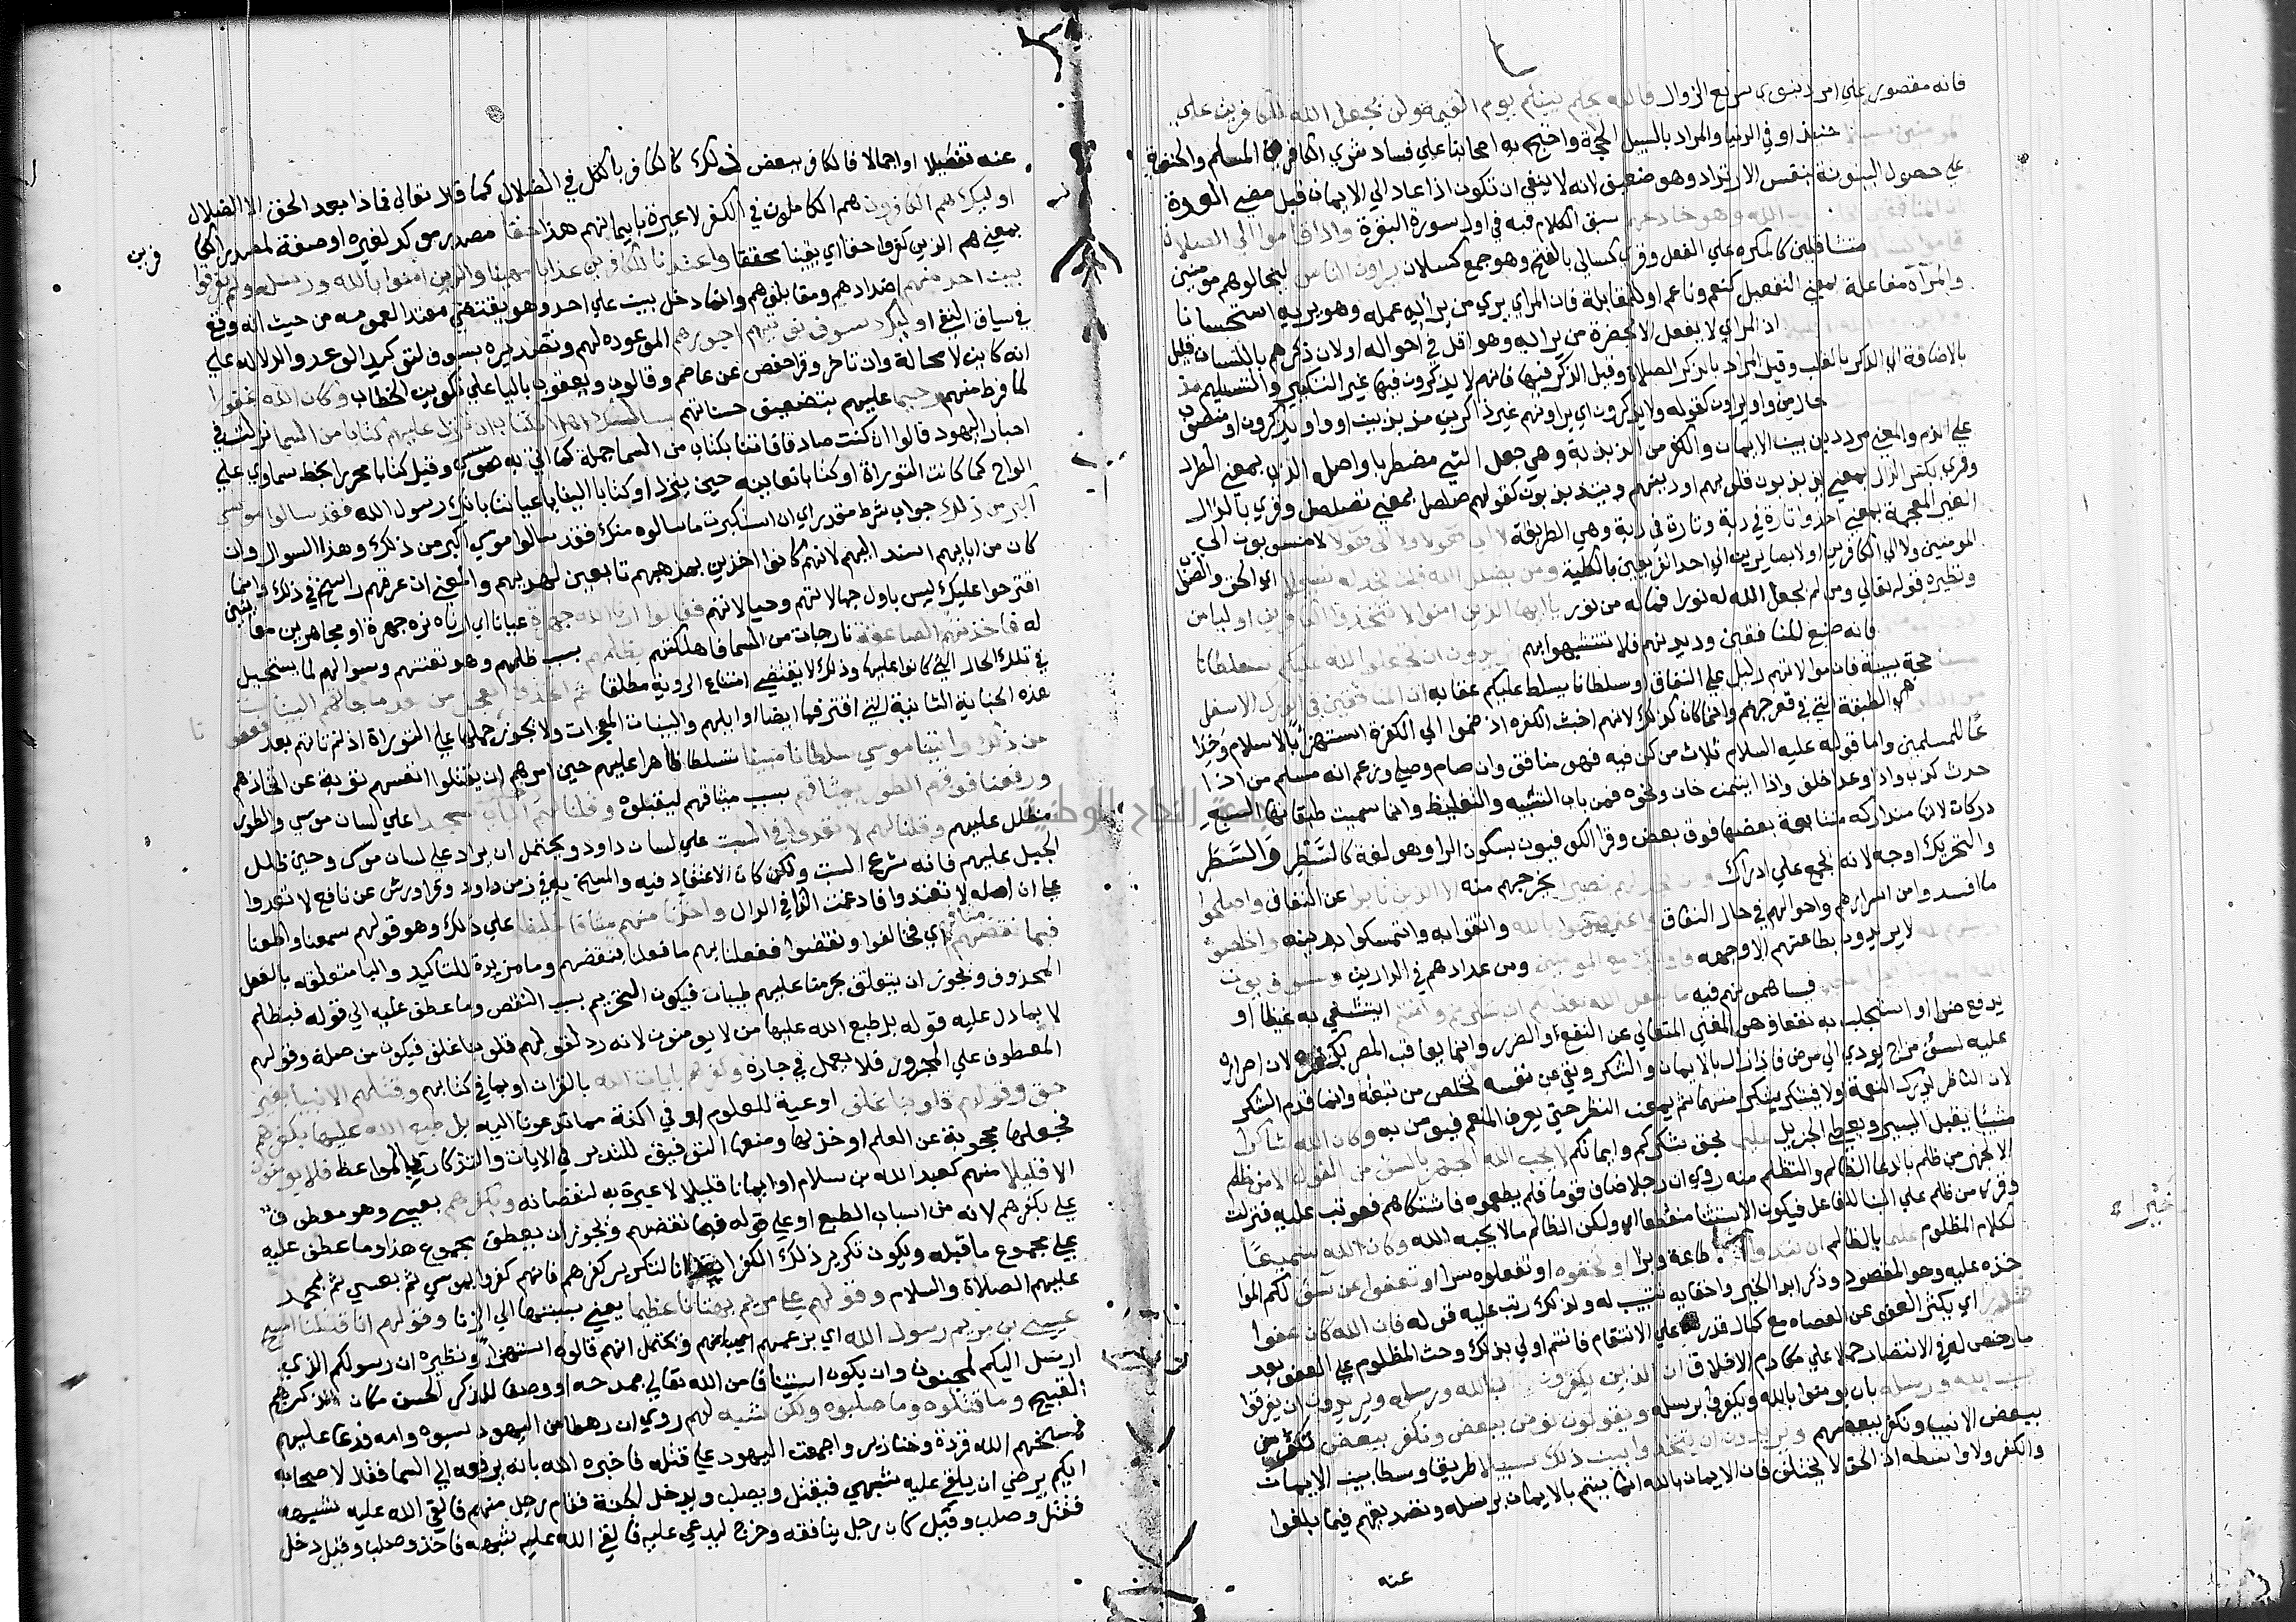 فانه مقصور علي امر دنيوي سريع الزوال فالله يحكم بينكم يوم القيمة ولن يجعل الله للكافرين علي
المومنين سبيلا حينئذ او في الدنيا والمراد بالسبيل الحجة واحتج به اصحابنا علي فساد شري الكافر المسلم والحنفية
علي حصول البينونة بنفس الارتداد وهو ضعيف لانه لا ينفي ان تكون اذا عاد الي الايمان قبل مضي العدة
ان المنافقين يخادعون الله وهو خادعهم سبق الكلام فيه في اول سورة البقرة واذا قاموا الي الصلاة
قاموا كسالي متثاقلين كالمكره علي الفعل وقري كسالي بالفتح وهو جمع كسلان يراون الناس ليخالوهم مومنين
والمرآة مفاعلة بمعني التفعيل كنعم وناعم او للمقابلة فان المراي يري من يرائيه عمله وهو يريه استحسانا
اذ المراي لا يفعل الا بحضرة من يرائيه وهو اقل في احواله او لان ذكرهم باللسان قليل
بالاضافة الي الذكر بالقلب وقيل المراد بالذكر الصلاة وقيل الذكر فيها فانهم لا يذكرون فيها غير التكبير والتسليم
حال من واو يراون كقوله ولا يذكرون اي يراونهم غير ذاكرين مذبذبين او واو يذكرون او منصوب
علي الذم والمعني مرددين بين الايمان والكفر من الذبذبة وهي جعل الشي مضطربا واصله الذب بمعني الطرد
وقري بكسر الذال بمعني يذبذبون قلوبهم او دينهم ويتذبذبون كقولهم صلصل بمعني تصلصل وقري بالدال
الغير المعجمة بمعني اخذوا تارة في دبة وتارة في دبة وهي الطريقة لا الي هولا ولا الي هولا لا منسوبون الي
المومنين ولا الي الكافرين او لا صايرين الي احد الفريقين بالكلية ومن يضلل الله فلن تجد له سبيلا الي الحق والصواب
ونظيره قوله تعالي ومن لم يجعل الله له نورا فما له من نور يا ايها الذين امنوا لا تتخذوا الكافرين اوليا من
فانه صنيع المنافقين وديدنهم فلا تتشبهوا بهم اتريدون ان تجعلوا لله عليكم سلطانا
مبينا حجة بينة فان موالاتهم دليل علي النفاق او سلطانا يسلط عليكم عقابه ان المنافقين في الدرك الاسفل
من النار هي الطبقة التي في قعر جهنم وانما كان كذلك لانهم اخبث الكفرة اذ ضموا الي الكفرة استهزاً بالاسلام وخدا
عاً للمسلمين واما قوله عليه السلام ثلاث من كن فيه فهو منافق وان صام وصلي وزعم انه مسلم من اذا
حدث كذب واذا وعد اخلف واذا ايتمن خان ونحوه فمن باب التشبيه والتغليظ وانما سميت طبقاتها السبع
دركات لانها متداركه متتابعة بعضها فوق بعض وقرا الكوفيون بسكون الرا وهو لغة كالسَّطْر والسَّطَر
والتحريك اوجه لانه يجمع علي ادراك ولن تجد لهم نصيرا يخرجهم منه الا الذين تابوا عن النفاق واصلحوا
ما افسدوا من اسرارهم واحوالهم في حال النفاق واعتصموا بالله واثقوا به واتمسكوا بدينه واخلصوا
دينهم لله لا يريدون بطاعتهم الا وجهه فاوليك مع المومنين ومن عدادهم في الدارين وسوف يوت
فيساهمونهم فيه ما يفعل الله بعذابكم ان شكرتم وامنتم ايتشفي به غيظا او
يدفع ضرا او استجلب به نفعا وهو الغني المتعالي عن النفع والضرر وانما يعاقب المصر بكفره لان اصراره
عليه كسوء مزاج يودي الي مرض فاذا زال بالايمان والشكر ونقي عن نفسه تخلص من تبعته وانما قدم الشكر
لان الناظر يدرك النعمة ولا فيشكر شكرا منهما ثم يمعن النظر حتي يعرف المنعم فيومن به وكان الله شاكرا
مثيبا يقبل اليسير ويعطي الجزيل عليما بحق شكركم وايمانكم لا يحب الله الجهر بالسوء من القول الا من ظلم
الا الجهر من ظلم بالدعا الظالم والتظلم منه روي ان رجلا ضاف قوما فلم يطعموه فاشتكاهم فعوتب عليه فنزلت
وقري من ظلم علي البنا للفاعل فيكون الاستثنا منقطعا اي ولكن الظالم ما لا يحبه الله وكان الله سميعاً
لكلام المظلوم عليما بالظالم ان تبدوا خيرا طاعة وبرا او تخفوه او تفعلوه سرا او تعفوا عن سوء لكم الموا
خذه عليه وهو المقصود وذكر ابدا الخير واخفايه تسبيب له ولذلك رتب عليه قوله فان الله كان عفوا
قديرا اي يكثر العفو عن العصاه مع كمال قدرته علي الانتقام فانتم اولي بذلك وحث المظلوم علي العفو بعد
ما رخص له في الانتصار حملا علي مكارم الاخلاق ان الذين يكفرون بالله ورسله ويريدون ان يفرقوا
بين الله ورسله بان يومنوا بالله ويكفروا برسله ويقولون نومن ببعض ونكفر ببعض نومن
ببعض الانبيا ونكفر ببعضهم ويريدون ان يتخذوا بين ذلك سبيلا طريقا وسطا بين الايمان
والكفر ولا واسطه اذ الحق لا يختلف فان الايمان بالله انما يتم بالايمان برسله وتصديقهم فيما بلغوا
عنه
عنه تفصيلا او اجمالا فالكافر ببعض ذلك كالكافر بالكل في الضلال كما قال تعالي فماذا بعد الحق الا الضلال
اوليك هم الكافرون هم الكاملون في الكفر لا عبرة بايمانهم هذا حقا مصدر موكد لغيره او صفة لمصدر الكا
فرين
بمعني هم الذين كفروا حقا اي يقينا محققا واعتدنا للكافرين عذابا مهينا والذين امنوا بالله ورسله ولم يفرقوا
بين احد منهم اضدادهم ومقابلوهم وانما دخل بين علي احد وهو يقتضي متعددا لعمومه من حيث انه وقع
في سياق النفي اوليك سوف نوتيهم اجورهم الموعوده لهم وتصديره بسوف لتوكيد الوعد والدلالة علي
انه كاين لا محالة وان تاخر وقرا حفص عن عاصم وقالون ويعقوب باليا علي تلوين الخطاب وكان الله غفورا
لما فرط منهم رحيما عليهم بتضعيف حسناتهم يسالك اهل الكتاب ان تنزل عليهم كتابا من السما نزلت في
احبار اليهود قالوا ان كنت صادقا فاتنا بكتاب من السما جملة كما اتي به موسي وقيل كتابا محررا بخط سماوي علي
الواح كما كانت التوراة او كتابا نعاينه حين ينزل او كتابا الينا باعياننا بانك رسول الله فقد سالوا موسي
اكبر من ذلك جواب شرط مقدر اي ان استكبرت ما سالوه منك فقد سالوا موسي اكبر من ذلك وهذا السوال وان
كان من ابايهم اسند اليهم لانهم كانوا اخذين بمذهبهم تابعين لهديهم والمعني ان عرقهم راسخ في ذلك وانما
اقترحوا عليك ليس باول جهالاتهم وخيالاتهم فقالوا ارنا الله جهرة عيانا اي ارناه نره جهرة او مجاهرين معاينين
له فاخذتهم الصاعقة نار جات من السما فاهلكتهم بظلمهم بسبب ظلمهم وهو تعنتهم وسوالهم لما يستحيل
في تلك الحال التي كانوا عليها وذلك لا يقتضي امتناع الروية مطلقا ثم اتخذوا العجل من بعد ما جاتهم البينات
هذه الجناية الثانية التي اقترفها ايضا اوايلهم والبينات المعجزات ولا يجوز حملها علي التوراة اذ لم تاتهم بعد فعفونا
عن ذلك واتينا موسي سلطانا مبينا تسلطا ظاهرا عليهم حين امرهم ان يقتلوا انفسهم توبة عن اتخاذهم
ورفعنا فوقهم الطور بميثاقهم بسبب ميثاقهم ليقبلوه وقلنا لهم ادخلوا الباب سجدا علي لسان موسي والطور
مظلل عليهم وقلنا لهم لا تعدوا في السبت علي لسان داود ويحتمل ان يراد علي لسان موسي وحين ظلل
الجبل عليهم فانه شرع السبت ولكن كان الاعتدا فيه والمسخ به في زمن داود وقرا ورش عن نافع لا تعدوا
علي ان اصله لا تعتدوا فادغمت التا في الدال واخذنا منهم ميثاقا غليظا علي ذلك وهو قولهم سمعنا واطعنا
فبما نقضهم ميثاقهم اي فخالفوا ونقضوا ففعلنا بهم ما فعلنا بنقضهم وما مزيدة للتاكيد والبا متعلقه بالفعل
المحذوف ويجوز ان يتعلق بحرمنا عليهم طيبات فيكون التحريم بسبب النقض وما عطف عليه الي قوله فبظلم
لا بما دل عليه قوله بل طبع الله عليها من لا يومنون لانه رد لقولهم قلوبنا غلف فيكون من صلة وقولهم
المعطوف علي المجرور فلا يعمل في جاره وكفرهم بايات الله بالقران او بما في كتابهم وقتلهم الانبيا بغير
حق وقولهم قلوبنا غلف اوعية للعلوم او في اكنة مما تدعونا اليه بل طبع الله عليها بكفرهم
فجعلها محجوبة عن العلم او خذلها ومنعها التوفيق للتدبر في الايات والتذكار في المواعظ فلا يومنون
الا قليلا منهم كعبد الله بن سلام او ايمانا قليلا لا عبرة به لنقصانه وبكفرهم بعيسي وهو معطوف
علي بكفرهم لانه من اسباب الطبع او علي قوله فبما نقضهم ويجوز ان يعطف مجموع هذا وما عطف عليه
علي مجموع ما قبله ويكون تكرير ذلك الكفر ايذانا لتكرير كفرهم فانهم كفروا بموسي ثم بعيسي ثم بمحمد
عليهم الصلاة والسلام وقولهم علي مريم بهتانا عظيما يعني نسبتها الي الزنا وقولهم انا قتلنا المسيح
عيسي بن مريم رسول الله اي بزعمهم ويحتمل انهم قالوه استهزاً ونظيره ان رسولكم الذي
ارسل اليكم لمجنون وان يكون استينافا من الله تعالي بمدحه او وصفا للذكر الحسن مكان ذكرهم
القبيح وما قتلوه وما صلبوه ولكن شبه لهم روي ان رهطا من اليهود سبوه وامه فدعا عليهم
فمسخهم الله قردة وخنازير واجمعت اليهود علي قتله فاخبره الله بانه يرفعه الي السما فقال لاصحابه
ايكم يرضي ان يلقي عليه شبهي فيقتل ويصلب ويدخل الجنة فقام رجل منهم فالقي الله عليه شبهه
فقتل وصلب وقيل كان رجل ينافقه وخرج ليدعي عليه فالقي الله عليه شبهه فاخذ وصلب وقيل دخل
جامعة النجاح الوطنية